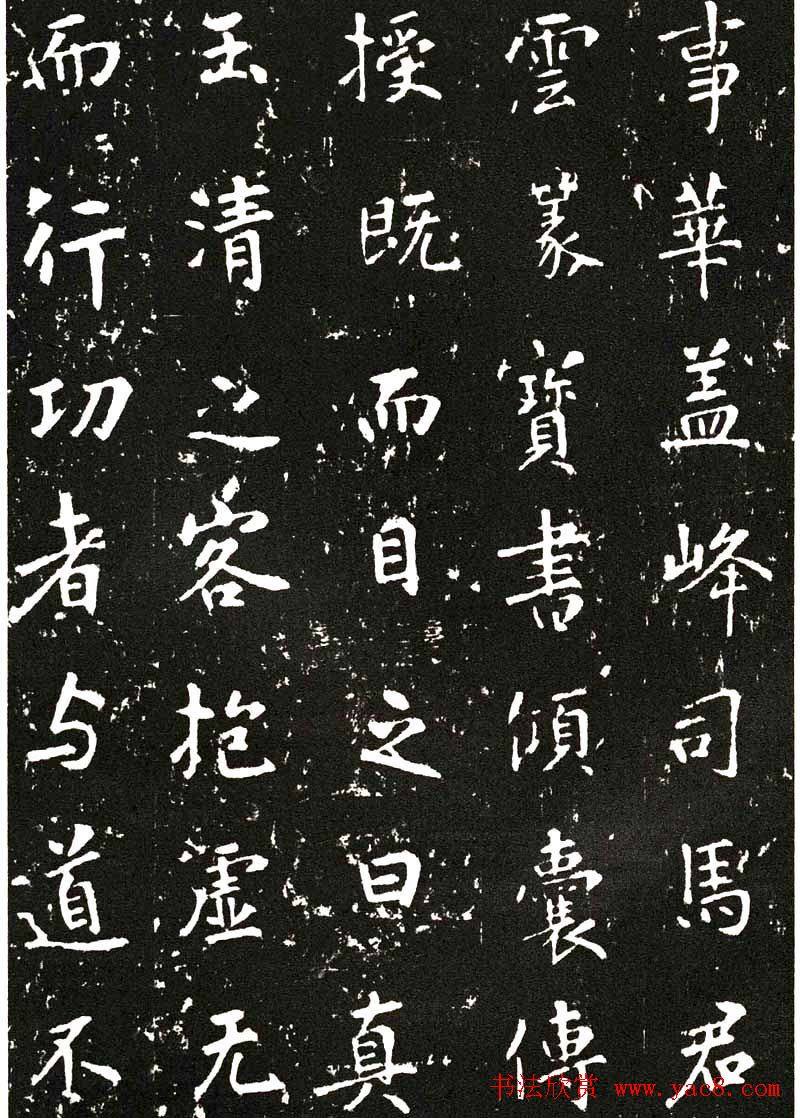 事華盖峰司馬君
雲篆寳書傾囊傳
授既而目之曰真
玉清之客抱虚无
而行功者与道不
书法欣赏 www.yac8.com